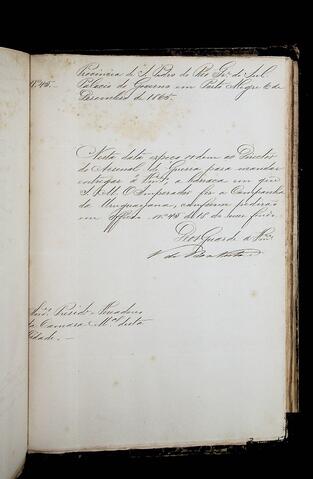 Provincia de S. Pedro do Rio Gr.e do Sul
Nº 45.- Palacio do Governo em Porto Alegre 6 de
Dezembro de 1865.
Nesta data expeço ordem ao Director
do Arsenal de Guerra para mandar
entregar á Vmces a barraca em que
S. M. O Imperador fez a Campanha
de Uruguayana, conforme pedirão
em officio nº 43 de 18 do mez findo.
Deos Guarde a Vmces
V. da Boa Vista
Snres Presid.e Vereadores
da Camara M.al desta
Cidade. -